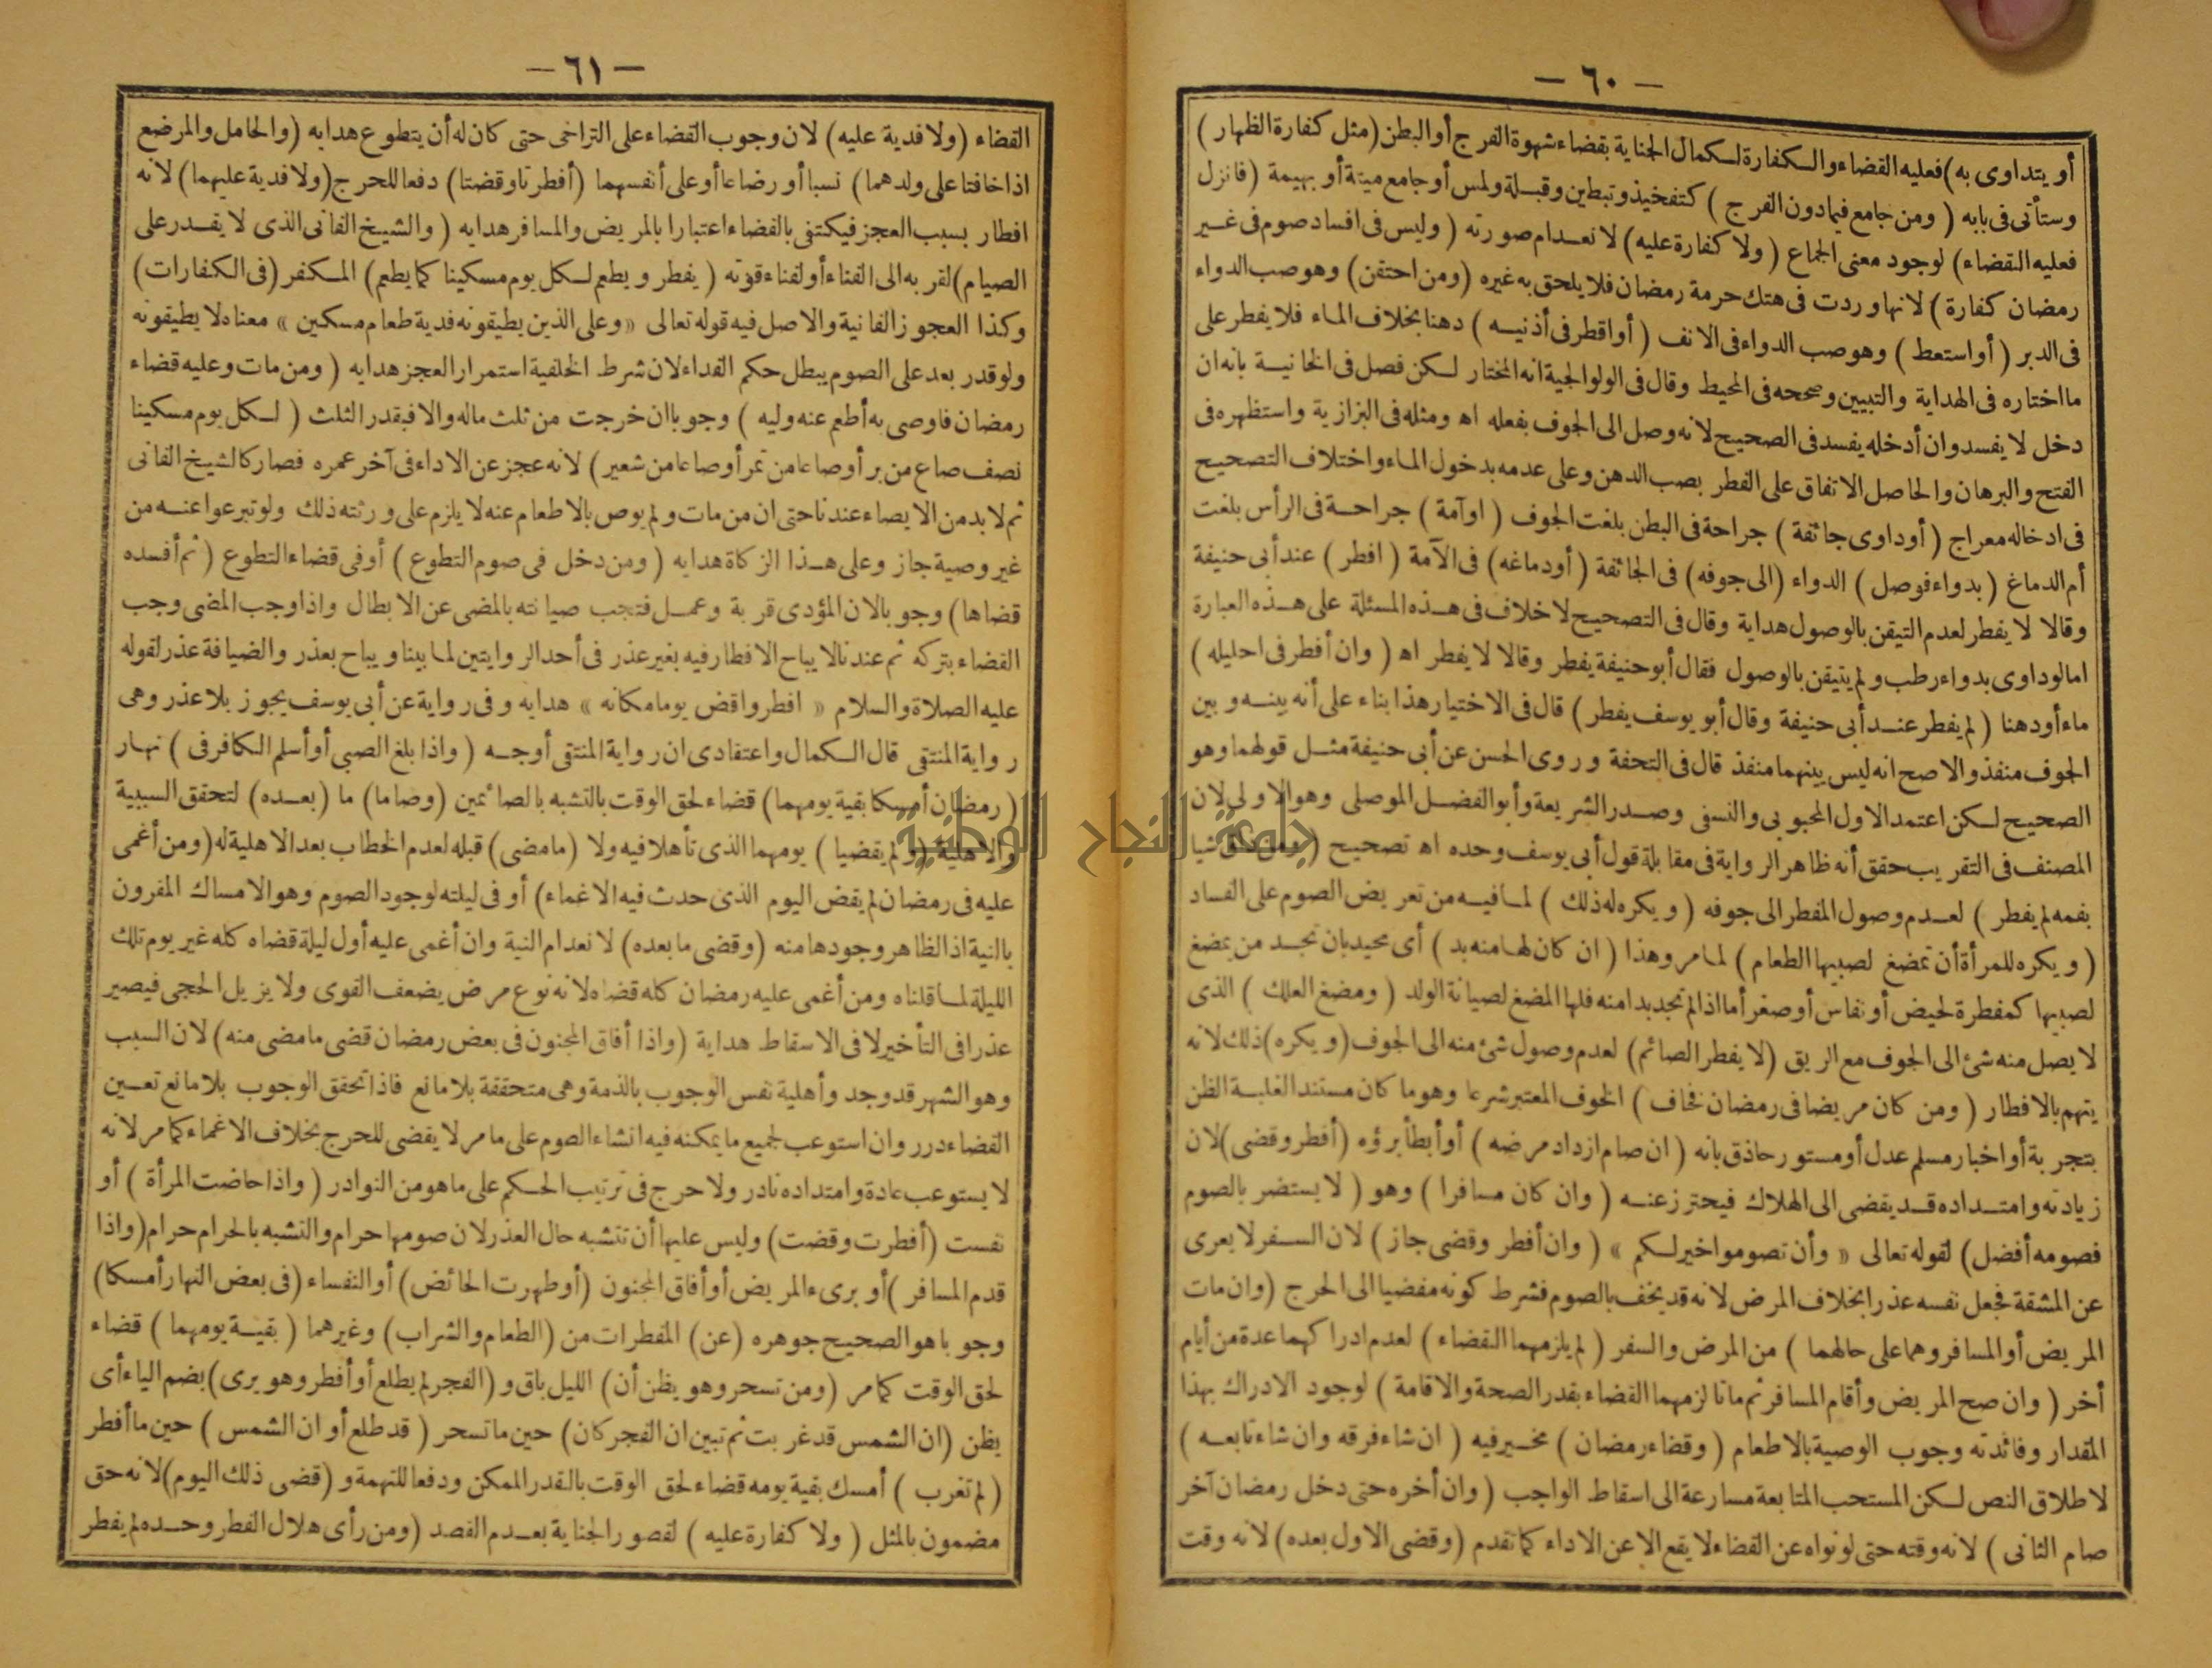 — ٦٠ —
أو يتداوى به) فعليه القضاء والكفارة لكمال الجناية بقضاء شهوة الفرج أو البطن (مثل كفارة الظهار)
وستأتى فى بابه (ومن جامع فيمادون الفرج) كتفخيذ وتبطين وقبلة ولمس أو جامع ميتة أو بهيمة (فانزل
فعليه القضاء) لوجود معنى الجماع (ولا كفارة عليه) لانعدام صورته (وليس فى افساد صوم فى غير
رمضان كفارة) لانها وردت فى هتك حرمة رمضان فلا يلحق به غيره (ومن احتقن) وهو صب الدواء
فى الدبر (أو استعط) وهو صب الدواء فى الانف (أو اقطر فى أذنيه) دهنا بخلاف الماء فلا يفطر على
ما اختاره فى الهداية والتبيين وصححه فى المحيط وقال فى الولوالجية انه المختار لكن فصل فى الخانية بانه ان
دخل لا يفسد وان أدخله يفسد فى الصحيح لانه وصل الى الجوف بفعله اه ومثله فى البزازية واستظهره فى
الفتح والبرهان والحاصل الاتفاق على الفطر بصب الدهن وعلى عدمه بدخول الماء واختلاف التصحيح
فى ادخاله معراج (أو داوى جائفة) جراحة فى البطن بلغت الجوف (اوآمة) جراحة فى الرأس بلغت
أم الدماغ (بدواء فوصل) الدواء (الى جوفه) فى الجائفة (أو دماغه) فى الآمة (افطر) عند أبى حنيفة
وقالا لا يفطر لعدم التيقن بالوصول هداية وقال فى التصحيح لاخلاف فى هذه المسئلة على هذه العبارة
امالو داوى بدواء رطب ولم يتيقن بالوصول فقال أبو حنيفة يفطر وقالا لا يفطر اه (وان أفطر فى احليله)
ماء أو دهنا (لم يفطر عند أبى حنيفة وقال أبو يوسف يفطر) قال فى الاختيار هذا بناء على أنه بينه وبين
الجوف منفذ والاصح انه ليس بينهما منفذ قال فى التحفة وروى الحسن عن أبى حنيفة مثل قولهما وهو
الصحيح لكن اعتمد الاول المحبوبى والنسفى وصدر الشريعة وأبو الفضل الموصلى وهو الاولى لان
المصنف فى التقريب حقق أنه ظاهر الرواية فى مقابلة قول أبى يوسف وحده اه تصحيح (ومن ذاق شيا
بفمه لم يفطر) لعدم وصول المفطر الى جوفه (ويكره له ذلك) لما فيه من تعريض الصوم على الفساد
(ويكره للمرأة أن تمضغ لصبيها الطعام) لما مر وهذا (ان كان لها منه بد) أى محيد بان تجد من يمضغ
لصبيها كمفطرة لحيض أو نفاس أو صغر أما اذا لم تجد بدا منه فلها المضغ لصيانة الولد (ومضغ العلك) الذى
لا يصل منه شئ الى الجوف مع الريق (لا يفطر الصائم) لعدم وصول شئ منه الى الجوف (ويكره) ذلك لانه
يتهم بالافطار (ومن كان مريضا فى رمضان فخاف) الخوف المعتبر شرعا وهو ما كان مستند الغلبة الظن
بتجربة أو اخبار مسلم عدل أو مستور حاذق بانه (ان صام ازداد مرضه) أو أبطأ برؤه (أفطر وقضى) لان
زيادته وامتداده قد يفضى الى الهلاك فيحترز عنه (وان كان مسافرا) وهو (لا يستضر بالصوم
فصومه أفضل) لقوله تعالى « وأن تصوموا خير لكم » (وان أفطر وقضى جاز) لان السفر لا يعرى
عن المشقة فجعل نفسه عذرا بخلاف المرض لانه قد يخف بالصوم فشرط كونه مفضيا الى الحرج (وان مات
المريض أو المسافر وهما على حالهما) من المرض والسفر (لم يلزمهما القضاء) لعدم ادراكهما عدة من أيام
أخر (وان صح المريض وأقام المسافر ثم ماتا لزمهما القضاء بقدر الصحة والاقامة) لوجود الادراك بهذا
المقدار وفائدته وجوب الوصية بالاطعام (وقضاء رمضان) مخير فيه (ان شاء فرقه وان شاء تابعه)
لاطلاق النص لكن المستحب المتابعة مسارعة الى اسقاط الواجب (وان أخره حتى دخل رمضان آخر
صام الثانى) لانه وقته حتى لو نواه عن القضاء لا يقع الا عن الاداء كما تقدم (وقضى الاول بعده) لانه وقت
— ٦١ —
القضاء (ولا فدية عليه) لان وجوب القضاء على التراخى حتى كان له أن يتطوع هدايه (والحامل والمرضع
اذا خافتا على ولدهما) نسبا أو رضاعا أو على أنفسهما (أفطرتا وقضتا) دفعا للحرج (ولا فدية عليهما) لانه
افطار بسبب العجز فيكتفى بالقضاء اعتبارا بالمريض والمسافر هدايه (والشيخ الفانى الذى لا يقدر على
الصيام) لقربه الى الفناء أو لفناء قوته (يفطر ويطعم لكل يوم مسكينا كما يطعم) المكفر (فى الكفارات)
وكذا العجوز الفانية والاصل فيه قوله تعالى « وعلى الذين يطيقونه فدية طعام مسكين » معناه لا يطيقونه
ولو قدر بعد على الصوم يبطل حكم الفداء لان شرط الخلفية استمرار العجز هدايه (ومن مات وعليه قضاء
رمضان فاوصى به أطعم عنه وليه) وجوبا ان خرجت من ثلث ماله والا فبقدر الثلث (لكل يوم مسكينا
نصف صاع من بر أو صاعا من تمر أو صاعا من شعير) لانه عجز عن الاداء فى آخر عمره فصار كالشيخ الفانى
ثم لا بد من الايصاء عندنا حتى ان من مات ولم يوص بالاطعام عنه لا يلزم على ورثته ذلك ولو تبرعوا عنه من
غير وصية جاز وعلى هذا الزكاة هدايه (ومن دخل فى صوم التطوع) أو فى قضاء التطوع (ثم أفسده
قضاها) وجوبا لان المؤدى قربة وعمل فتجب صيانته بالمضى عن الابطال واذا وجب المضى وجب
القضاء بتركه ثم عندنا لا يباح الافطار فيه بغير عذر فى أحد الروايتين لما بينا ويباح بعذر والضيافة عذر لقوله
عليه الصلاة والسلام « افطر واقض يوما مكانه » هدايه وفى رواية عن أبى يوسف يجوز بلا عذر وهى
رواية المنتقى قال الكمال واعتقادى ان رواية المنتقى أوجه (واذا بلغ الصبى أو أسلم الكافر فى) نهار
(رمضان أمسكا بقية يومهما) قضاء لحق الوقت بالتشبه بالصائمين (وصاما) ما (بعده) لتحقق السببية
والاهلية (ولم يقضيا) يومهما الذى تأهلا فيه ولا (ما مضى) قبله لعدم الخطاب بعد الاهلية له (ومن أغمى
عليه فى رمضان لم يقض اليوم الذى حدث فيه الاغماء) أو فى ليلته لوجود الصوم وهو الامساك المقرون
بالنية اذ الظاهر وجودها منه (وقضى ما بعده) لانعدام النية وان أغمى عليه أول ليلة قضاه كله غير يوم تلك
الليلة لما قلناه ومن أغمى عليه رمضان كله قضاه لانه نوع مرض يضعف القوى ولا يزيل الحجى فيصير
عذرا فى التأخير لا فى الاسقاط هداية (واذا أفاق المجنون فى بعض رمضان قضى ما مضى منه) لان السبب
وهو الشهر قد وجد وأهلية نفس الوجوب بالذمة وهى متحققة بلا مانع فاذا تحقق الوجوب بلا مانع تعين
القضاء درر وان استوعب لجميع ما يمكنه فيه انشاء الصوم على ما مر لا يقضى للحرج بخلاف الاغماء كما مر لانه
لا يستوعب عادة وامتداده نادر ولا حرج فى ترتيب الحكم على ما هو من النوادر (واذا حاضت المرأة) أو
نفست (أفطرت وقضت) وليس عليها أن تتشبه حال العذر لان صومها حرام والتشبه بالحرام حرام (واذا
قدم المسافر) أو برىء المريض أو أفاق المجنون (أو طهرت الحائض) أو النفساء (فى بعض النهار أمسكا)
وجوبا هو الصحيح جوهره (عن) المفطرات من (الطعام والشراب) وغيرهما (بقية يومهما) قضاء
لحق الوقت كما مر (ومن تسحر وهو يظن أن) الليل باق و (الفجر لم يطلع أو أفطر وهو يرى) بضم الياء أى
يظن (ان الشمس قد غربت ثم تبين ان الفجر كان) حين ما تسحر (قد طلع أو ان الشمس) حين ما أفطر
(لم تغرب) أمسك بقية يومه قضاء لحق الوقت بالقدر الممكن ودفعا للتهمة و (قضى ذلك اليوم) لانه حق
مضمون بالمثل (ولا كفارة عليه) لقصور الجناية بعدم القصد (ومن رأى هلال الفطر وحده لم يفطر
جامعة النجاح الوطنية